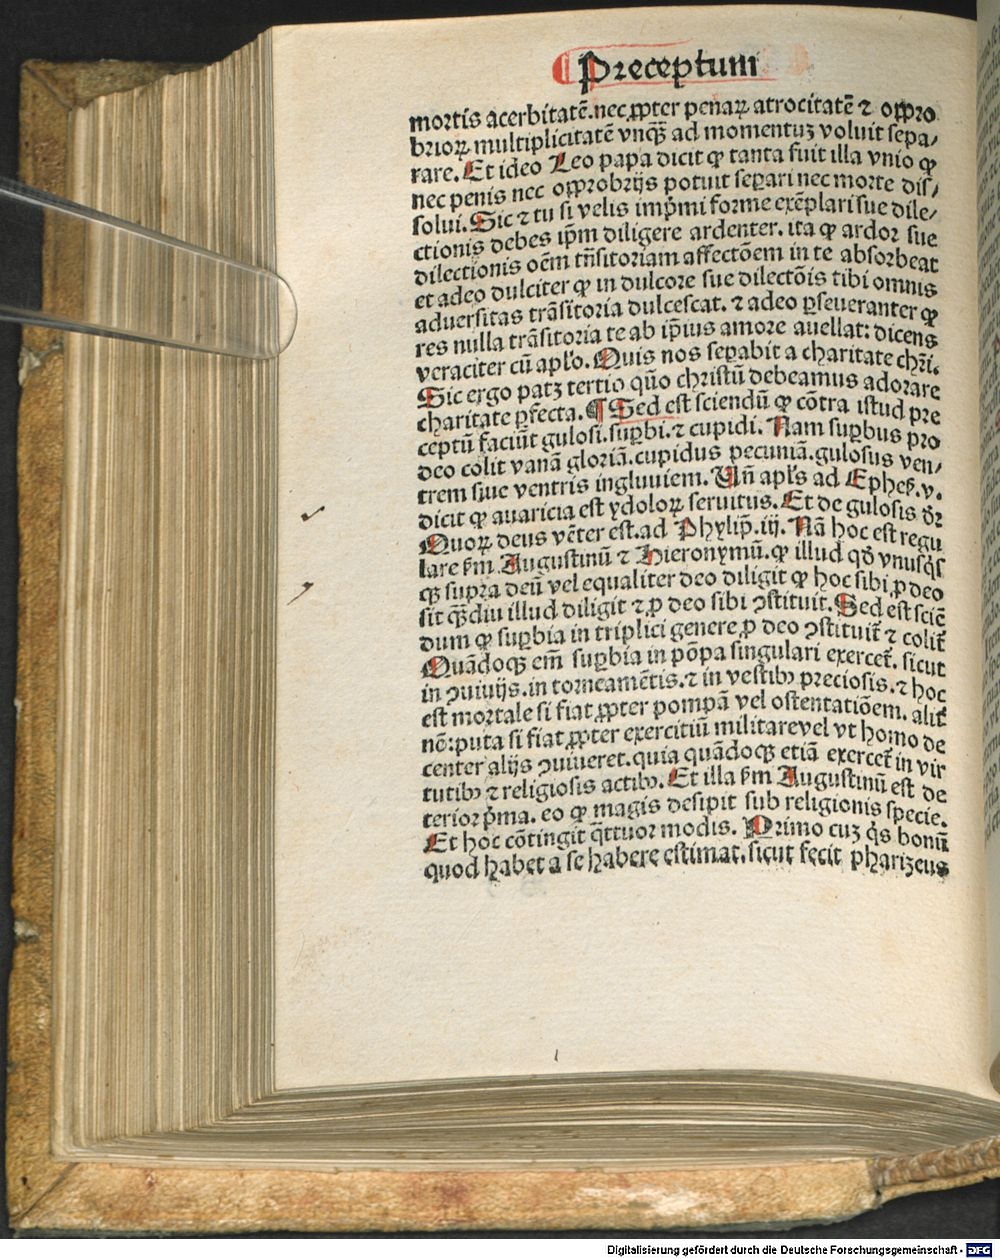 Preceptum
mortis acerbitatē.nec ꝓpter penaꝝ atrocitatē ⁊ oꝓpro
brioꝝ multiplicitatē vnqꝫ ad momentuꝫ voluit sepa⸗
rare. Et ideo Leo papa dicit ꝙ tanta fuit illa vnio ꝙ
nec penis nec opprobrijs potuit separi nec morte dis⸗
solui. Sic ⁊ tu si velis imp̄mi forme exēplari sue dile⸗
ctionis debes ip̄m diligere ardenter. ita ꝙ ardor sue
dilectionis oēm trāsitoriam affectōem in te absorbeat
et adeo dulciter ꝙ in dulcore sue dilectōis tibi omnis
aduersitas trāsitoria dulcescat. ⁊ adeo ꝑseueranter ꝙ
res nulla trāsitoria te ab ip̄ius amore auellat: dicens
veraciter cū apl'o. Quis nos seꝑabit a charitate chr̄i.
Sic ergo patꝫ tertio quō christū debeamus adorare
charitate ꝑfecta. ¶ Sed est sciendū ꝙ cōtra istud pre
ceptū faciūt gulosi.suꝑbi.⁊ cupidi. Nam suꝑbus pro
deo colit vanā gloriā.cupidus pecuniā.gulosus ven⸗
trem siue ventris ingluuiem. Vn̄ apl's ad Ephes. v.
dicit ꝙ auaricia est ydoloꝝ seruitus. Et de gulosis dr̄
Quoꝝ deus vēter est.ad Phylip̄. iij. Nā hoc est regu
lare ẜm Augustinū ⁊ Hieronymū. ꝙ illud qd̄ vnusq̄s
qꝫ supra deū vel equaliter deo diligit ꝙ hoc sibi ꝓ deo
sit qꝫdiu illud diligit ⁊ ꝓ deo sibi ꝯstituit. Sed est sciē
dum ꝙ suꝑbia in triplici genere ꝓ deo ꝯstituit̄ ⁊ colit̄
Quādoqꝫ em̄ suꝑbia in pōpa singulari exercet̄. sicut
in ꝯuiuijs.in torneamētis.⁊ in vestibꝰ preciosis.⁊ hoc
est mortale si fiat ꝓpter pompā vel ostentatiōem. alit̄
nō:puta si fiat ꝓpter exercitiū militare vel vt homo de
center alijs ꝯuiueret. quia quādoqꝫ etiā exercet̄ in vir
tutibꝰ ⁊ religiosis actibꝰ. Et illa ẜm Augustinū est de
terior p̄ma. eo ꝙ magis desipit sub religionis specie.
Et hoc cōtingit q̄ttuor modis. Primo cuꝫ q̄s bonū
quod habet a se habere estimat.sicut fecit pharizeus
Digitalisierung gefördert durch die Deutsche Forschungsgemeinschaft - DFG